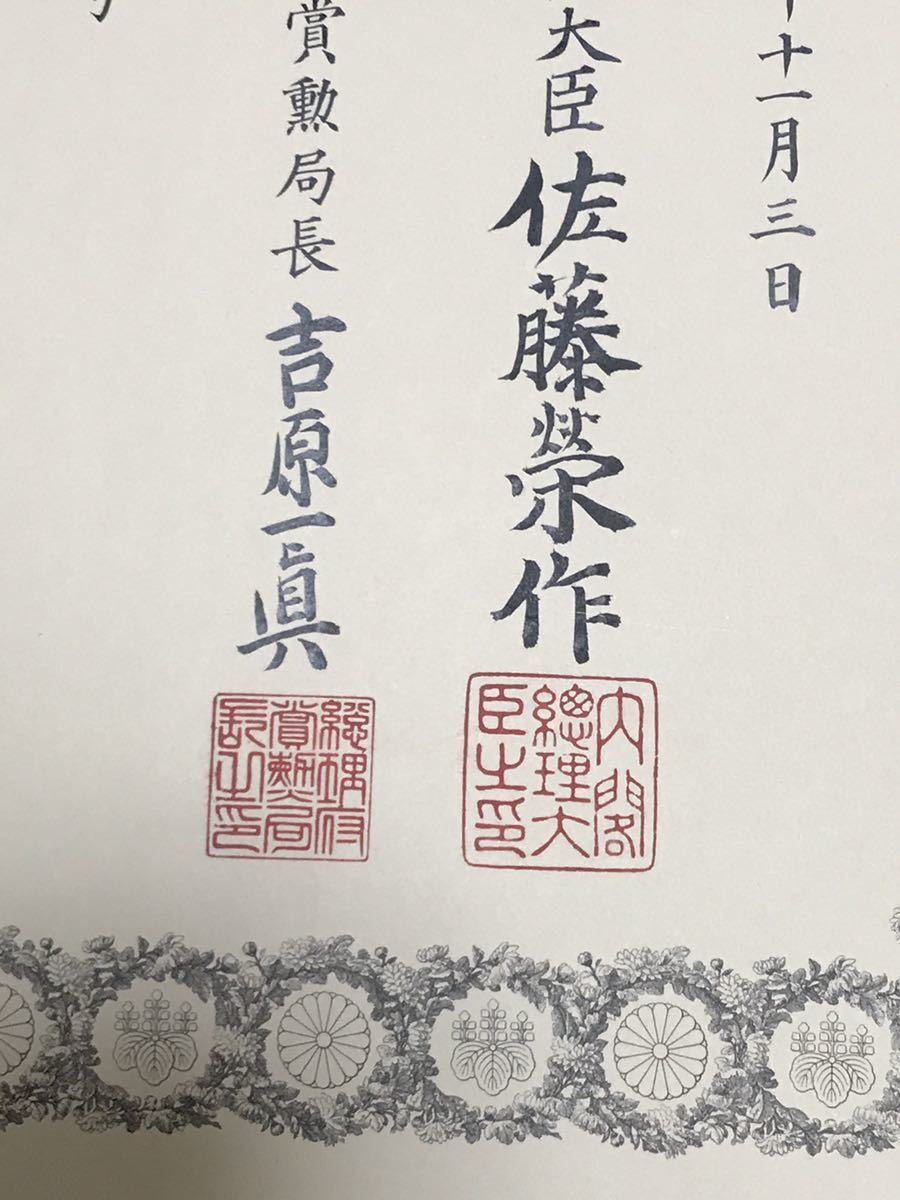 十一月三日
大臣 佐藤榮作
賞勲局長 吉原一眞
内閣
總理大
臣之印
総理府
賞勲局
長之印